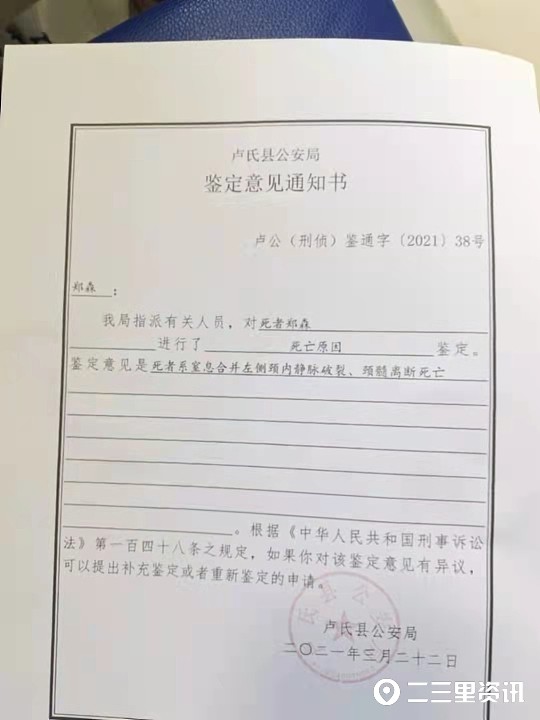 卢氏县公安局
鉴定意见通知书
卢公（刑侦）鉴通字〔2021〕38号
郑森：
我局指派有关人员，对死者郑森
进行了 死亡原因 鉴定。
鉴定意见是死者系窒息合并左侧颈内静脉破裂、颈髓离断死亡
。根据《中华人民共和国刑事诉讼
法》第一百四十八条之规定，如果你对该鉴定意见有异议，
可以提出补充鉴定或者重新鉴定的申请。
卢氏县公安局
二〇二一年三月二十二日
二三里资讯